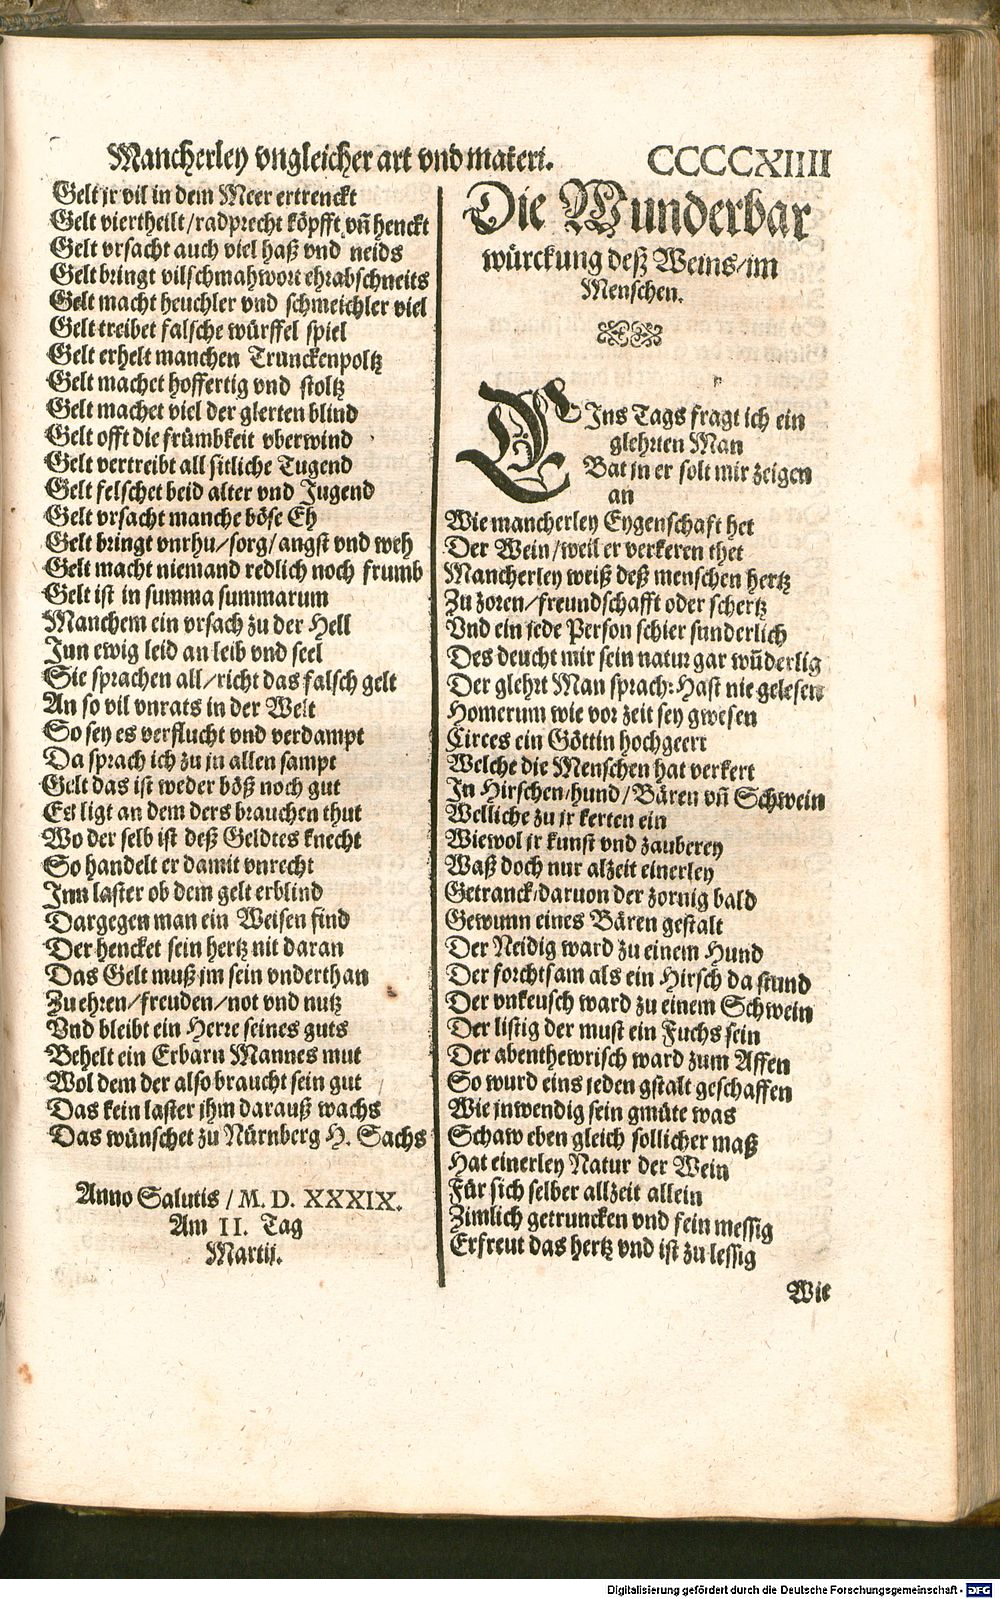 Mancherley vngleicher art vnd materi. CCCCXIIII
Gelt jr vil in dem Meer ertrenckt
Gelt viertheilt/radprecht köpfft vñ henckt
Gelt vrsacht auch viel haß vnd neids
Gelt bringt vilschmahwort ehrabschneits
Gelt macht heuchler vnd schmeichler viel
Gelt treibet falsche würffel spiel
Gelt erhelt manchen Trunckenpoltz
Gelt machet hoffertig vnd stoltz
Gelt machet viel der glerten blind
Gelt offt die frümbkeit vberwind
Gelt vertreibt all sitliche Tugend
Gelt felschet beid alter vnd Jugend
Gelt vrsacht manche böse Eh
Gelt bringt vnrhu/sorg/angst vnd weh
Gelt macht niemand redlich noch frumb
Gelt ist in summa summarum
Manchem ein vrsach zu der Hell
Inn ewig leid an leib vnd seel
Sie sprachen all/richt das falsch gelt
An so vil vnrats in der Welt
So sey es verflucht vnd verdampt
Da sprach ich zu jn allen sampt
Gelt das ist weder böß noch gut
Es ligt an dem ders brauchen thut
Wo der selb ist deß Geldtes knecht
So handelt er damit vnrecht
Inn laster ob dem gelt erblind
Dargegen man ein Weisen find
Der hencket sein hertz nit daran
Das Gelt muß jm sein vnderthan
Zu ehren/freuden/not vnd nutz
Vnd bleibt ein Herre seines guts
Behelt ein Erbarn Mannes mut
Wol dem der also braucht sein gut
Das kein laster jhm darauß wachs
Das wünschet zu Nürnberg H. Sachs
Anno Salutis / M. D. XXXIX.
Am II. Tag
Martij.
Die Wunderbar
würckung deß Weins/im
Menschen.
EIns Tags fragt ich ein
glehrten Man
Bat jn er solt mir zeigen
an
Wie mancherley Eygenschaft het
Der Wein/weil er verkeren thet
Mancherley weiß deß menschen hertz
Zu zoren/freundschafft oder schertz
Vnd ein jede Person schier sunderlich
Des deucht mir sein natur gar wũderlig
Der glehrt Man sprach: Hast nie gelesen
Homerum wie vor zeit sey gwesen
Circes ein Göttin hochgeert
Welche die Menschen hat verkert
In Hirschen/hund/Bären vñ Schwein
Welliche zu jr kerten ein
Wiewol jr kunst vnd zauberey
Waß doch nur alzeit einerley
Getranck/daruon der zornig bald
Gewunn eines Bären gestalt
Der Neidig ward zu einem Hund
Der forchtsam als ein Hirsch da stund
Der vnkeusch ward zu einem Schwein
Der listig der must ein Fuchs sein
Der abenthewrisch ward zum Affen
So wurd eins jeden gstalt geschaffen
Wie jnwendig sein gmüte was
Schaw eben gleich sollicher maß
Hat einerley Natur der Wein
Für sich selber allzeit allein
Zimlich getruncken vnd fein messig
Erfreut das hertz vnd ist zu lessig
Wie
Digitalisierung gefördert durch die Deutsche Forschungsgemeinschaft - DFG